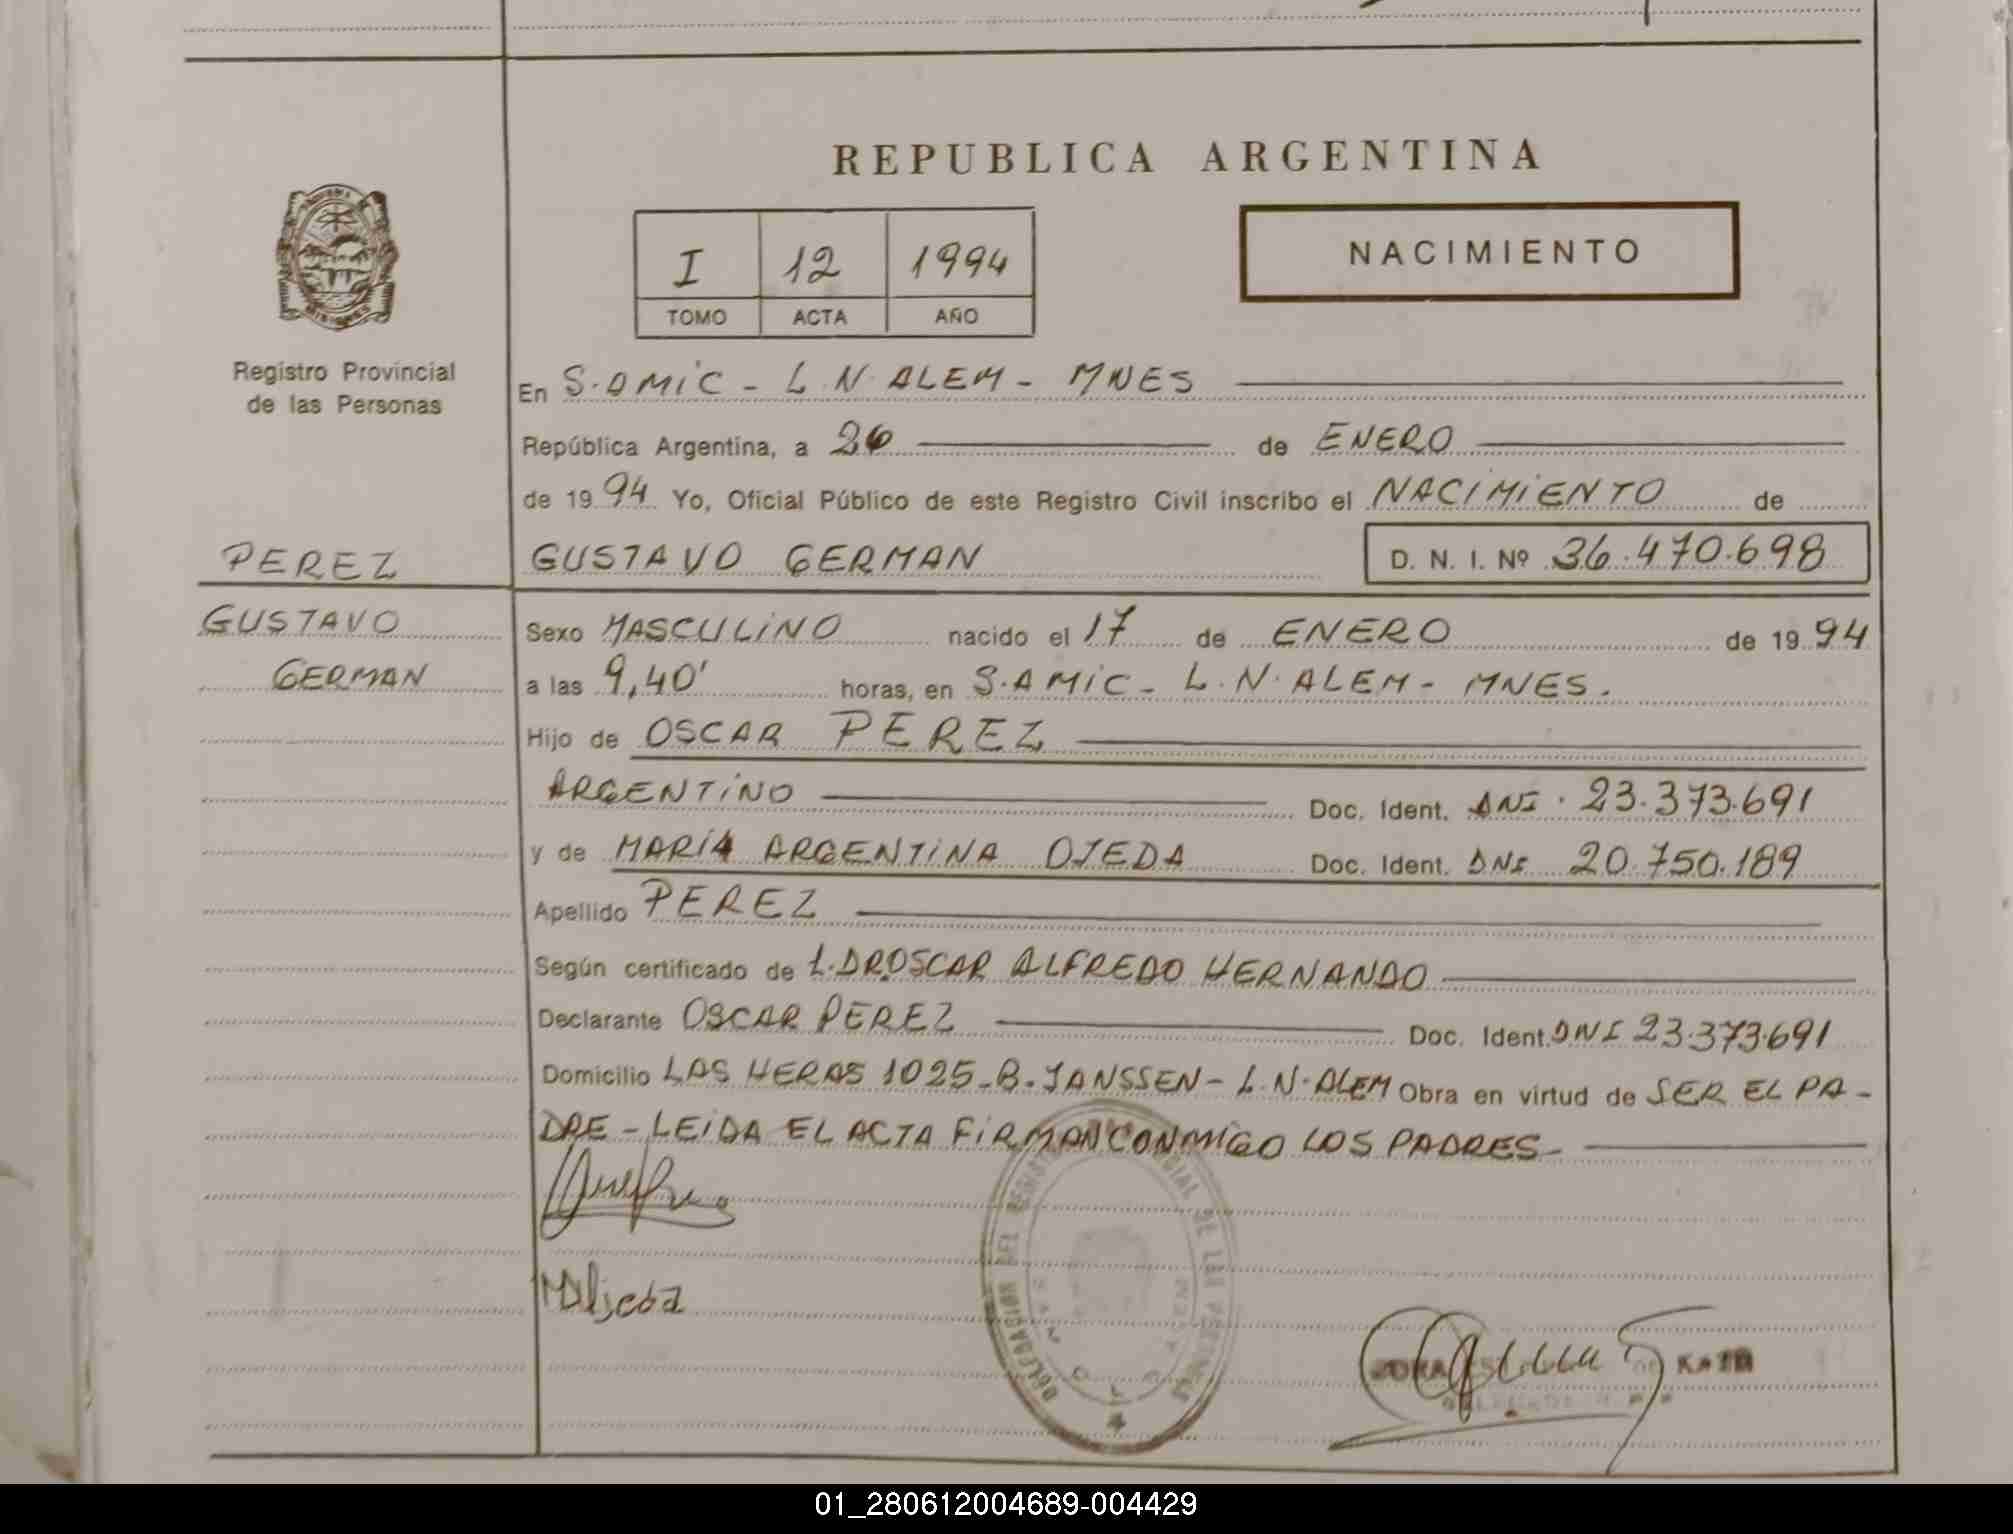 REPUBLICA ARGENTINA
I 12 1994
TOMO ACTA AÑO
NACIMIENTO
MISIONES
Registro Provincial
de las Personas
En S.AMIC - L.N.ALEM - MNES
República Argentina, a 26 de ENERO
de 1994 Yo, Oficial Público de este Registro Civil inscribo el NACIMIENTO de
PEREZ GUSTAVO GERMAN D. N. I. Nº 36.470.698
GUSTAVO Sexo MASCULINO nacido el 17 de ENERO de 1994
GERMAN a las 9,40' horas, en S.AMIC - L.N.ALEM - MNES.
Hijo de OSCAR PEREZ
ARGENTINO Doc. Ident. DNI. 23.373.691
y de MARIA ARGENTINA OJEDA Doc. Ident. DNI 20.750.189
Apellido PEREZ
Según certificado de L.DR.OSCAR ALFREDO HERNANDO
Declarante OSCAR PEREZ Doc. Ident. DNI 23.373.691
Domicilio LAS HERAS 1025-B.JANSSEN-L.N.ALEM Obra en virtud de SER EL PA-
DRE - LEIDA EL ACTA FIRMAN CONMIGO LOS PADRES-
DELEGACION DEL REGISTRO PROVINCIAL DE LAS PERSONAS
MAOjeda
01_280612004689-004429